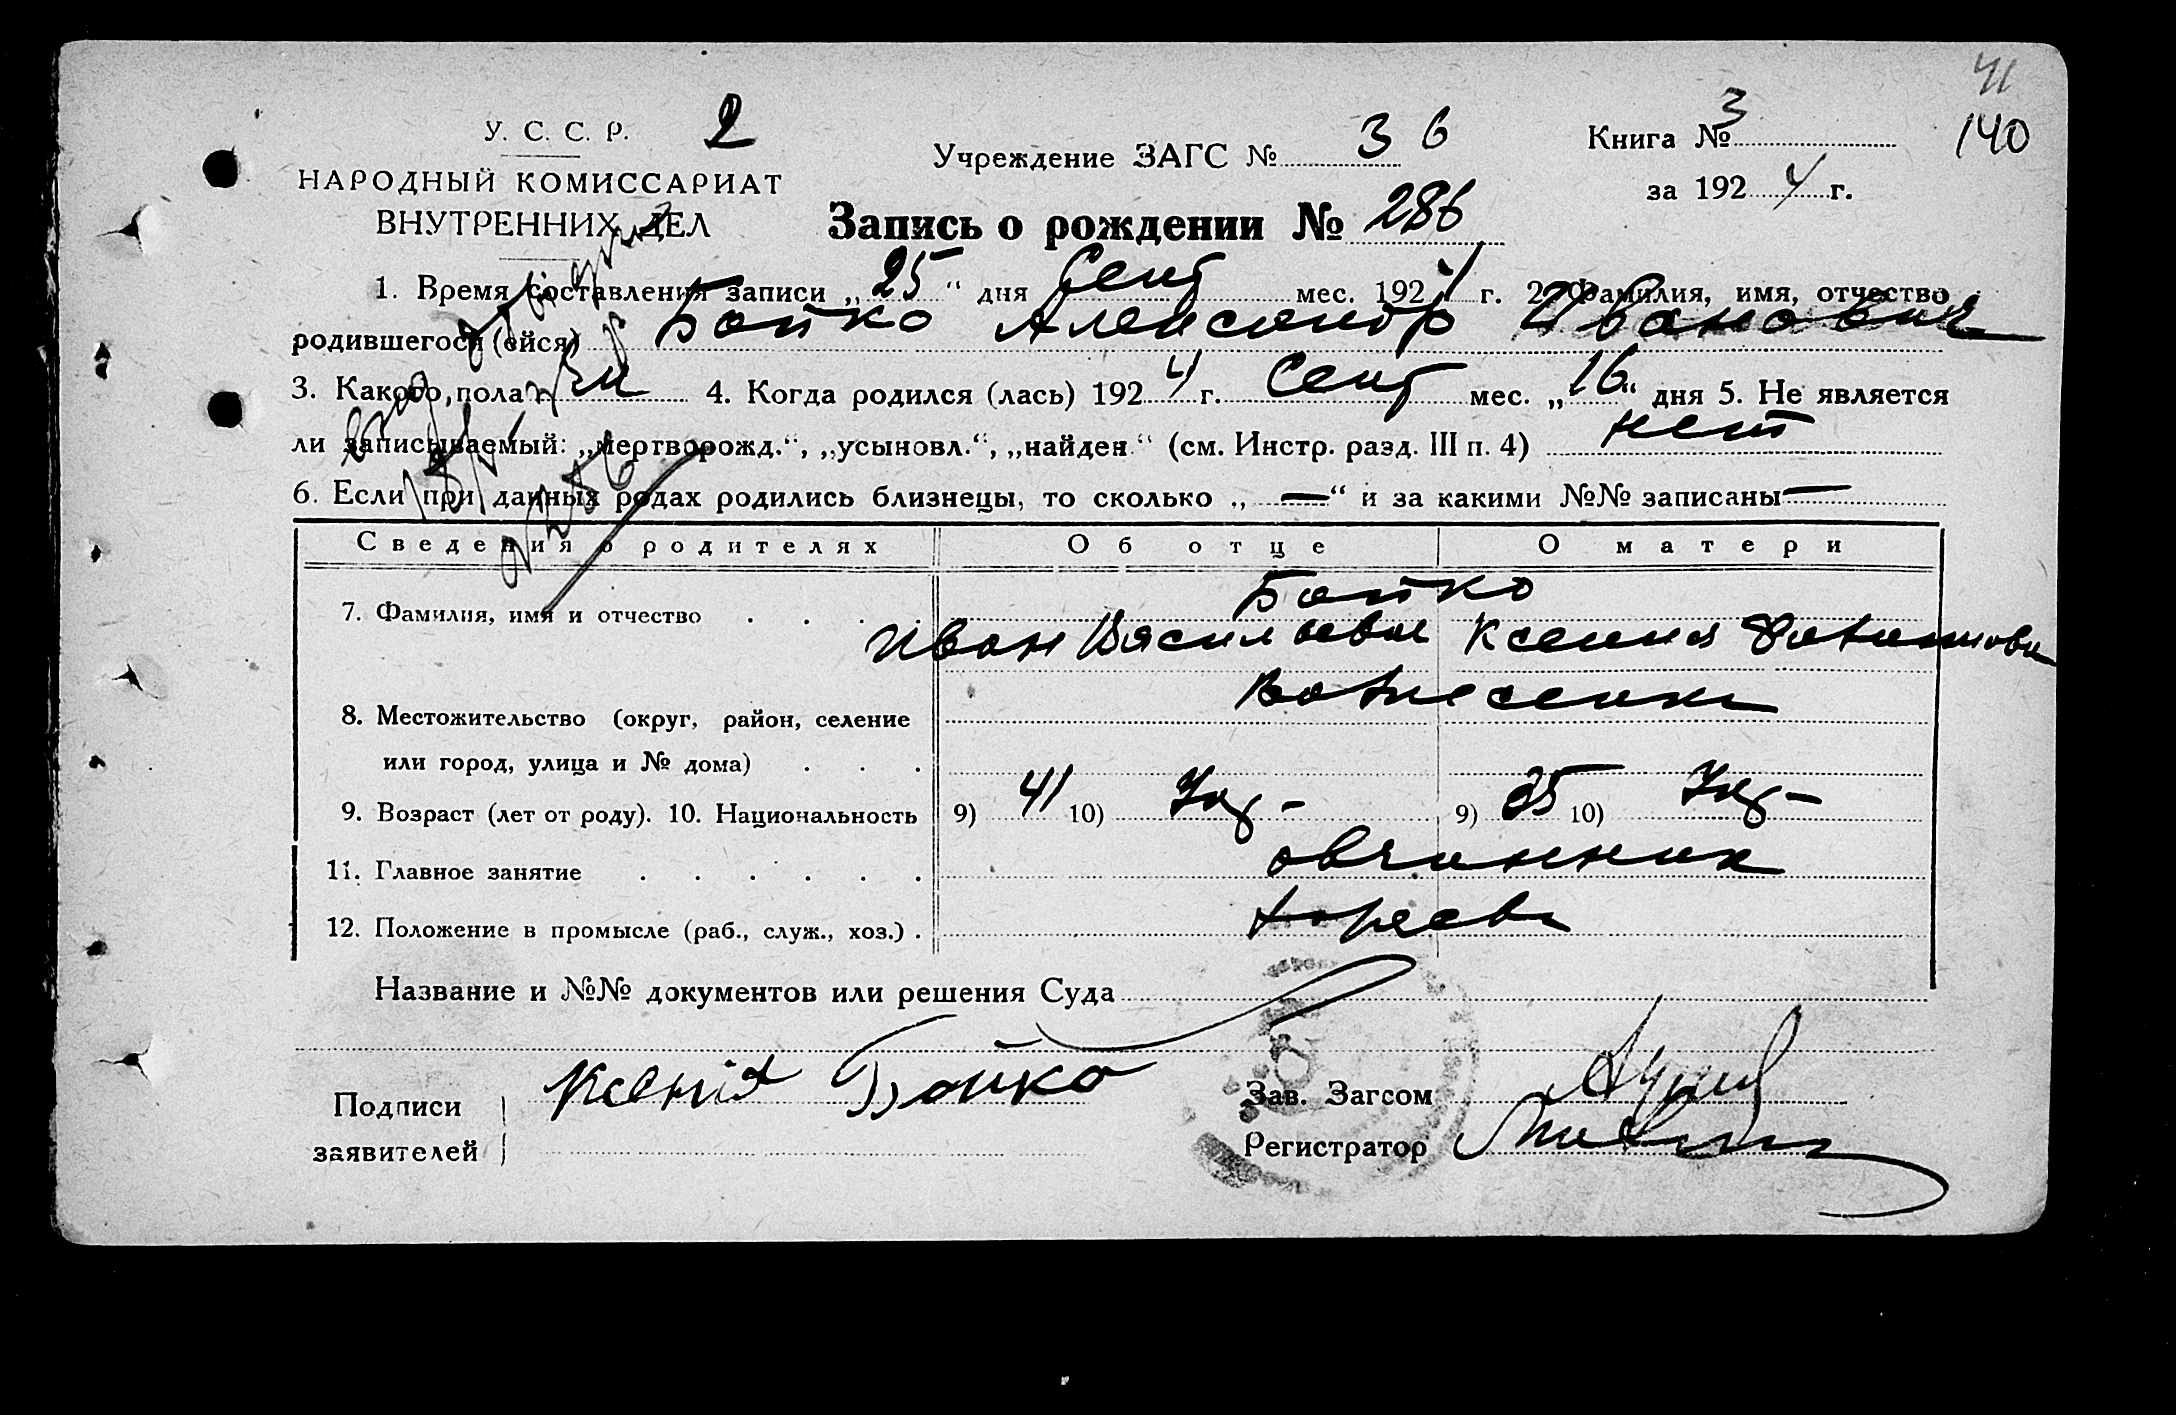 41
У. С. С. Р. 2
Учреждение ЗАГС № 36
Книга № 3
140
НАРОДНЫЙ КОМИССАРИАТ
ВНУТРЕННИХ ДЕЛ
за 1924 г.
Запись о рождении № 286
1. Время составления записи „25“ дня Сент мес. 1924 г. 2. Фамилия, имя, отчество
родившегося (ейся) Бойко Александр Иванович
3. Какого пола м 4. Когда родился (лась) 1924 г. Сент мес. „16“ дня 5. Не является
ли записываемый: „мертворожд.“, „усыновл.“, „найден“ (см. Инстр. разд. III п. 4) нет
6. Если при данных родах родились близнецы, то сколько „—“ и за какими №№ записаны —
Сведения о родителях Об отце О матери
7. Фамилия, имя и отчество . . . . Бойко
Иван Васильевич Ксения
8. Местожительство (округ, район, селение
или город, улица и № дома) . . .
9. Возраст (лет от роду). 10. Национальность 9) 41 10) 9) 35 10)
11. Главное занятие . . . . . . овчинник
12. Положение в промысле (раб., служ., хоз.) .
Название и №№ документов или решения Суда
Подписи
заявителей
Ксенія Бойко
Зав. Загсом
Регистратор